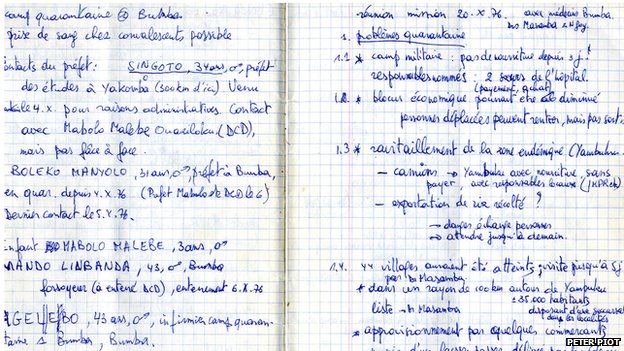 camp quarantaine → Bumba.
prise de sang chez convalescents possible
contacts du préfet : SINGOTO, 34 ans, ♂, préfet
des études à Yakombo (100 km d'ici) Venu
le 4.X. pour raisons administratives. Contact
avec Mabolo Malebe (DCD),
mais pas face à face.
BOLEKO MANYOLO, 31 ans, ♂, préfet à Bumba,
en quar. depuis 4.X.76 (Préfet Mabolo est DCD le 6)
Dernier contact le 5.X.76.
enfant MABOLO MALEBE, 3 ans, ♂
LINBANDA, 43, ♂, Bumba
fossoyeur (a enterré DCD), enterrement 6.X.76
43 ans, ♂, infirmier camp quaran-
taine Bumba, Bumba.
réunion mission 20.X.76 avec médecins Bumba.
Drs Masamba & Ngoy.
1. problèmes quarantaine
1.1 * camp militaire : pas de nourriture depuis 3 j !
responsables nommés : 2 sœurs de l'hôpital.
(payement, achat)
1.2. * blocus économique pourrait être diminué
personnes déplacées peuvent rentrer, mais pas sortir
1.3 * ravitaillement de la zone endémique (Yambuku
– camions → Yambuku avec nourriture, sans
payer, avec responsables locaux (JMPR etc)
– exportation de riz récolté ?
→ danger échange personnes
→ attendre jusqu'à demain.
1.4. 44 villages auraient été atteints ; visite jusqu'à 5 j
par Dr Masamba
* dans un rayon de 100 km autour de Yambuku
± 35.000 habitants
liste → Dr Masamba disposant d'une
dans les localités
* approvisionnement par quelques commerçants
PETER PIOT